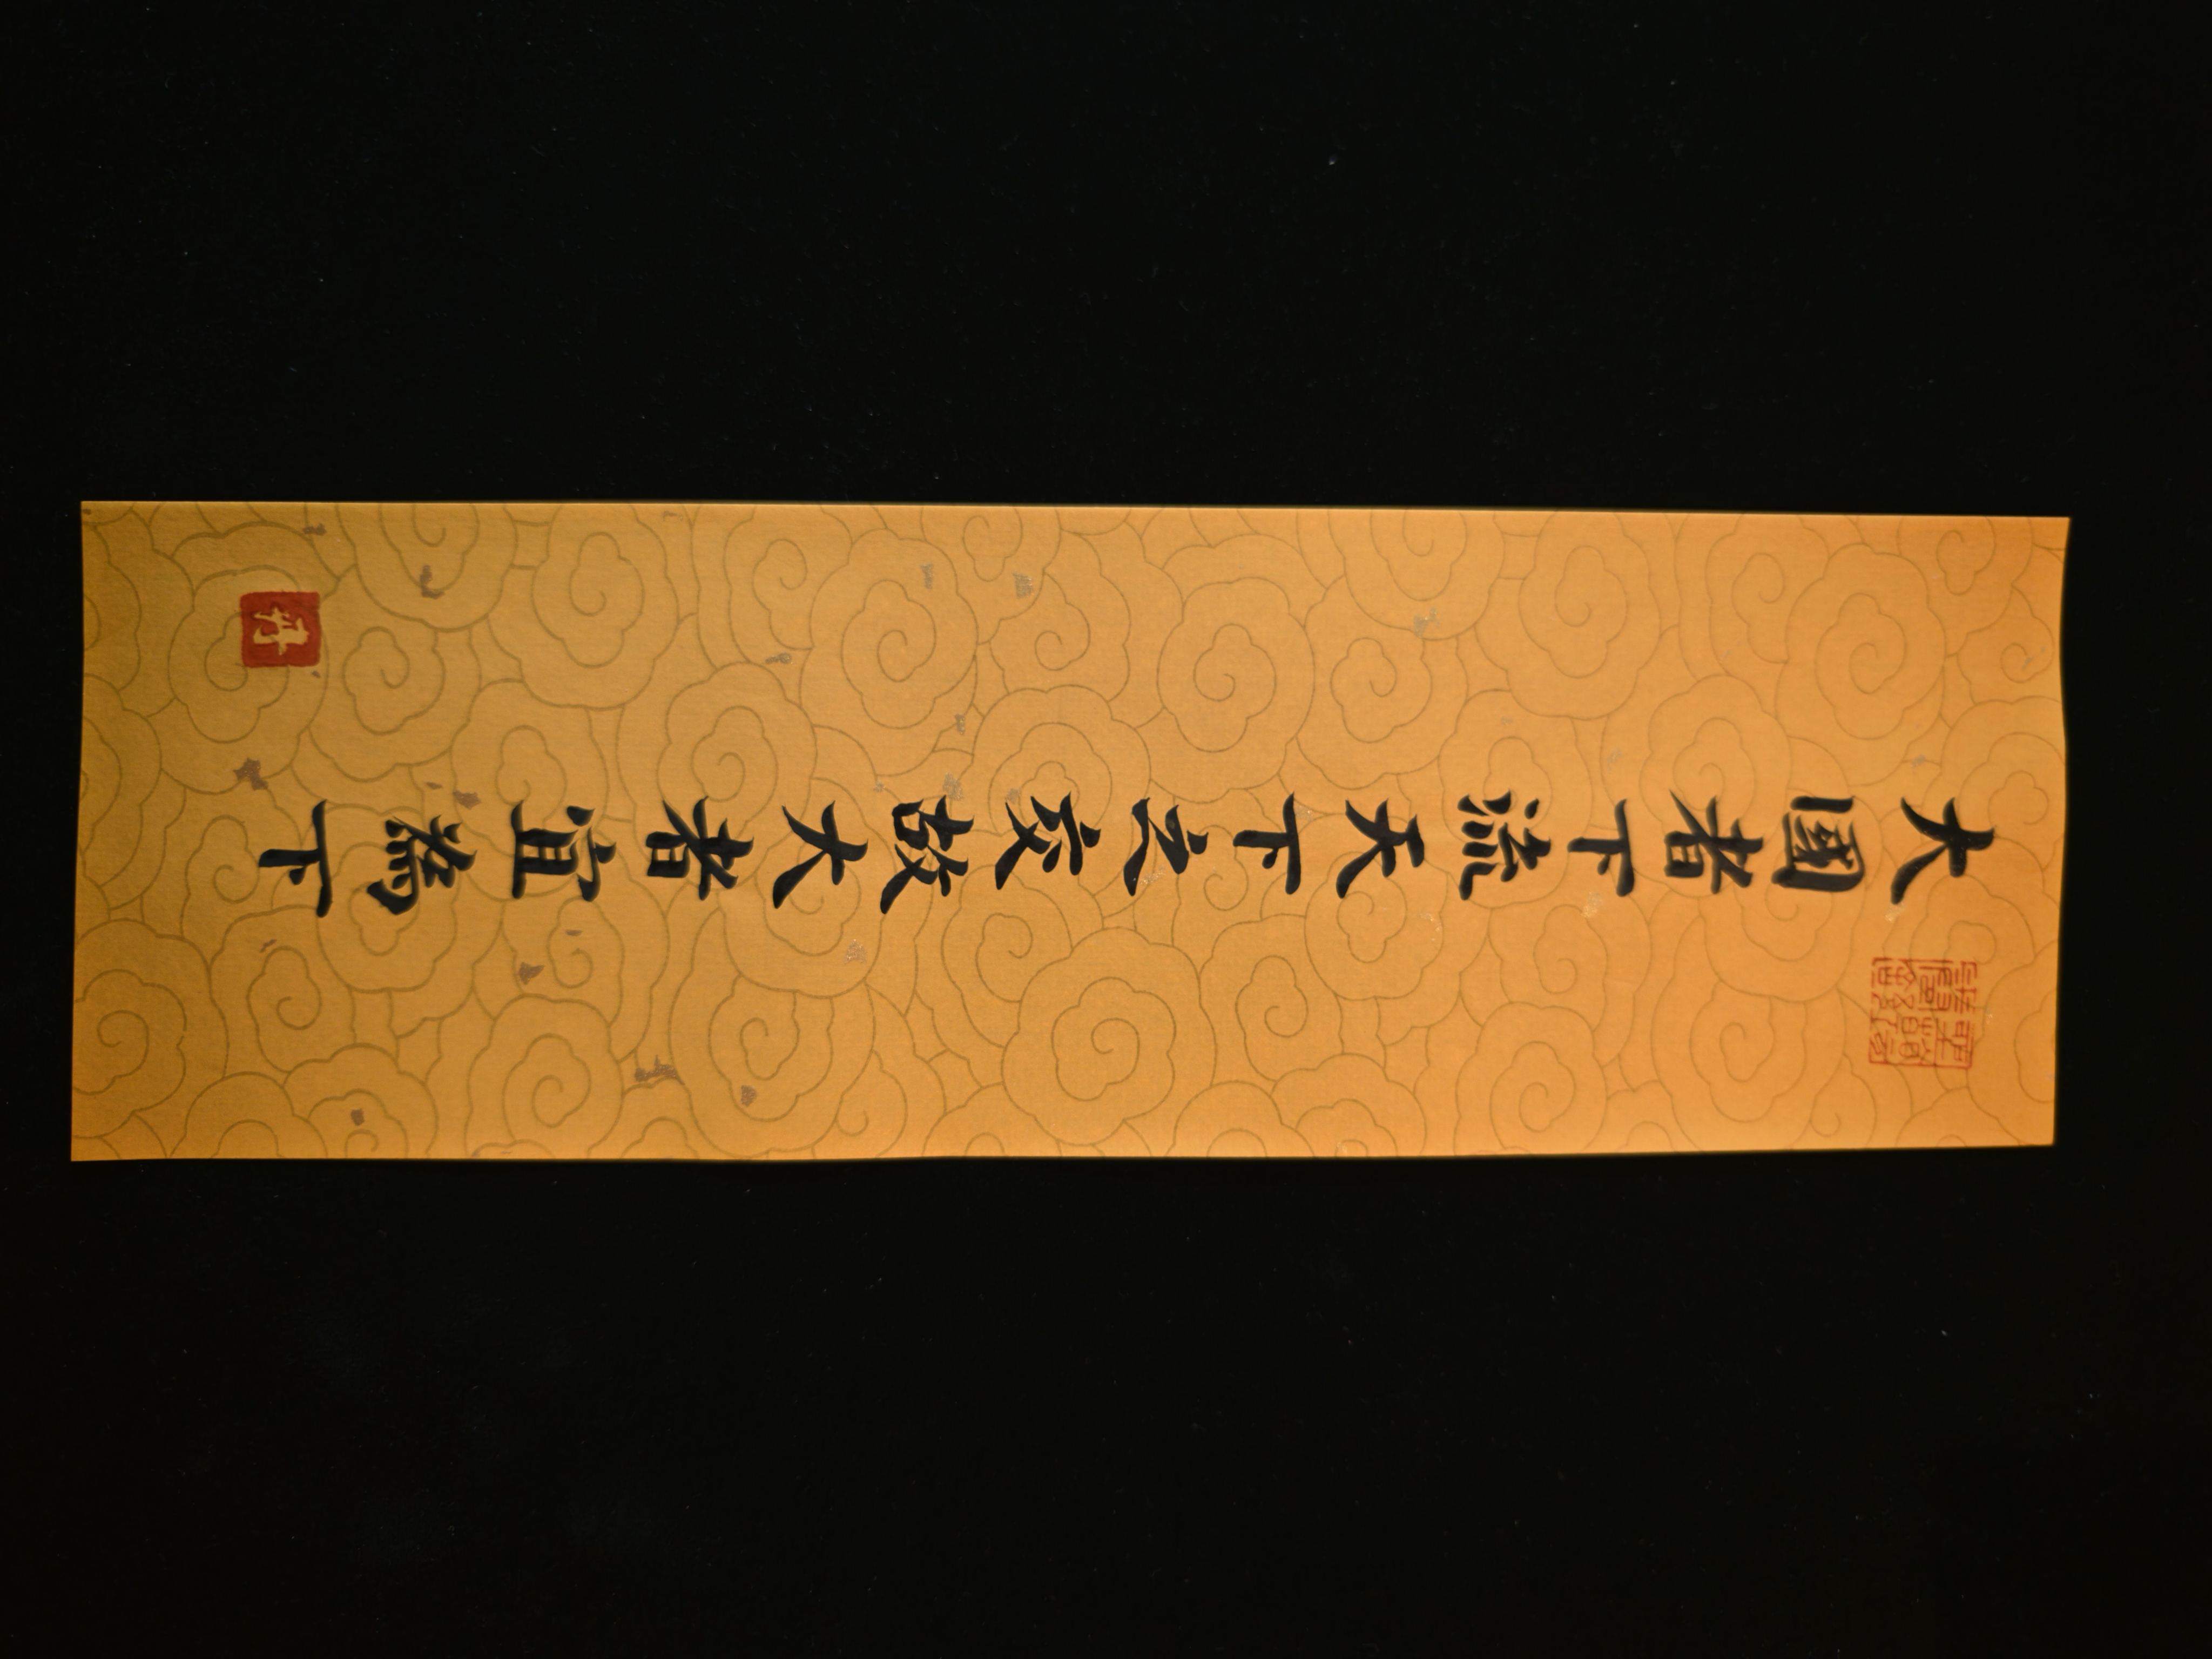 大國者下流天下之交故大者宜為下